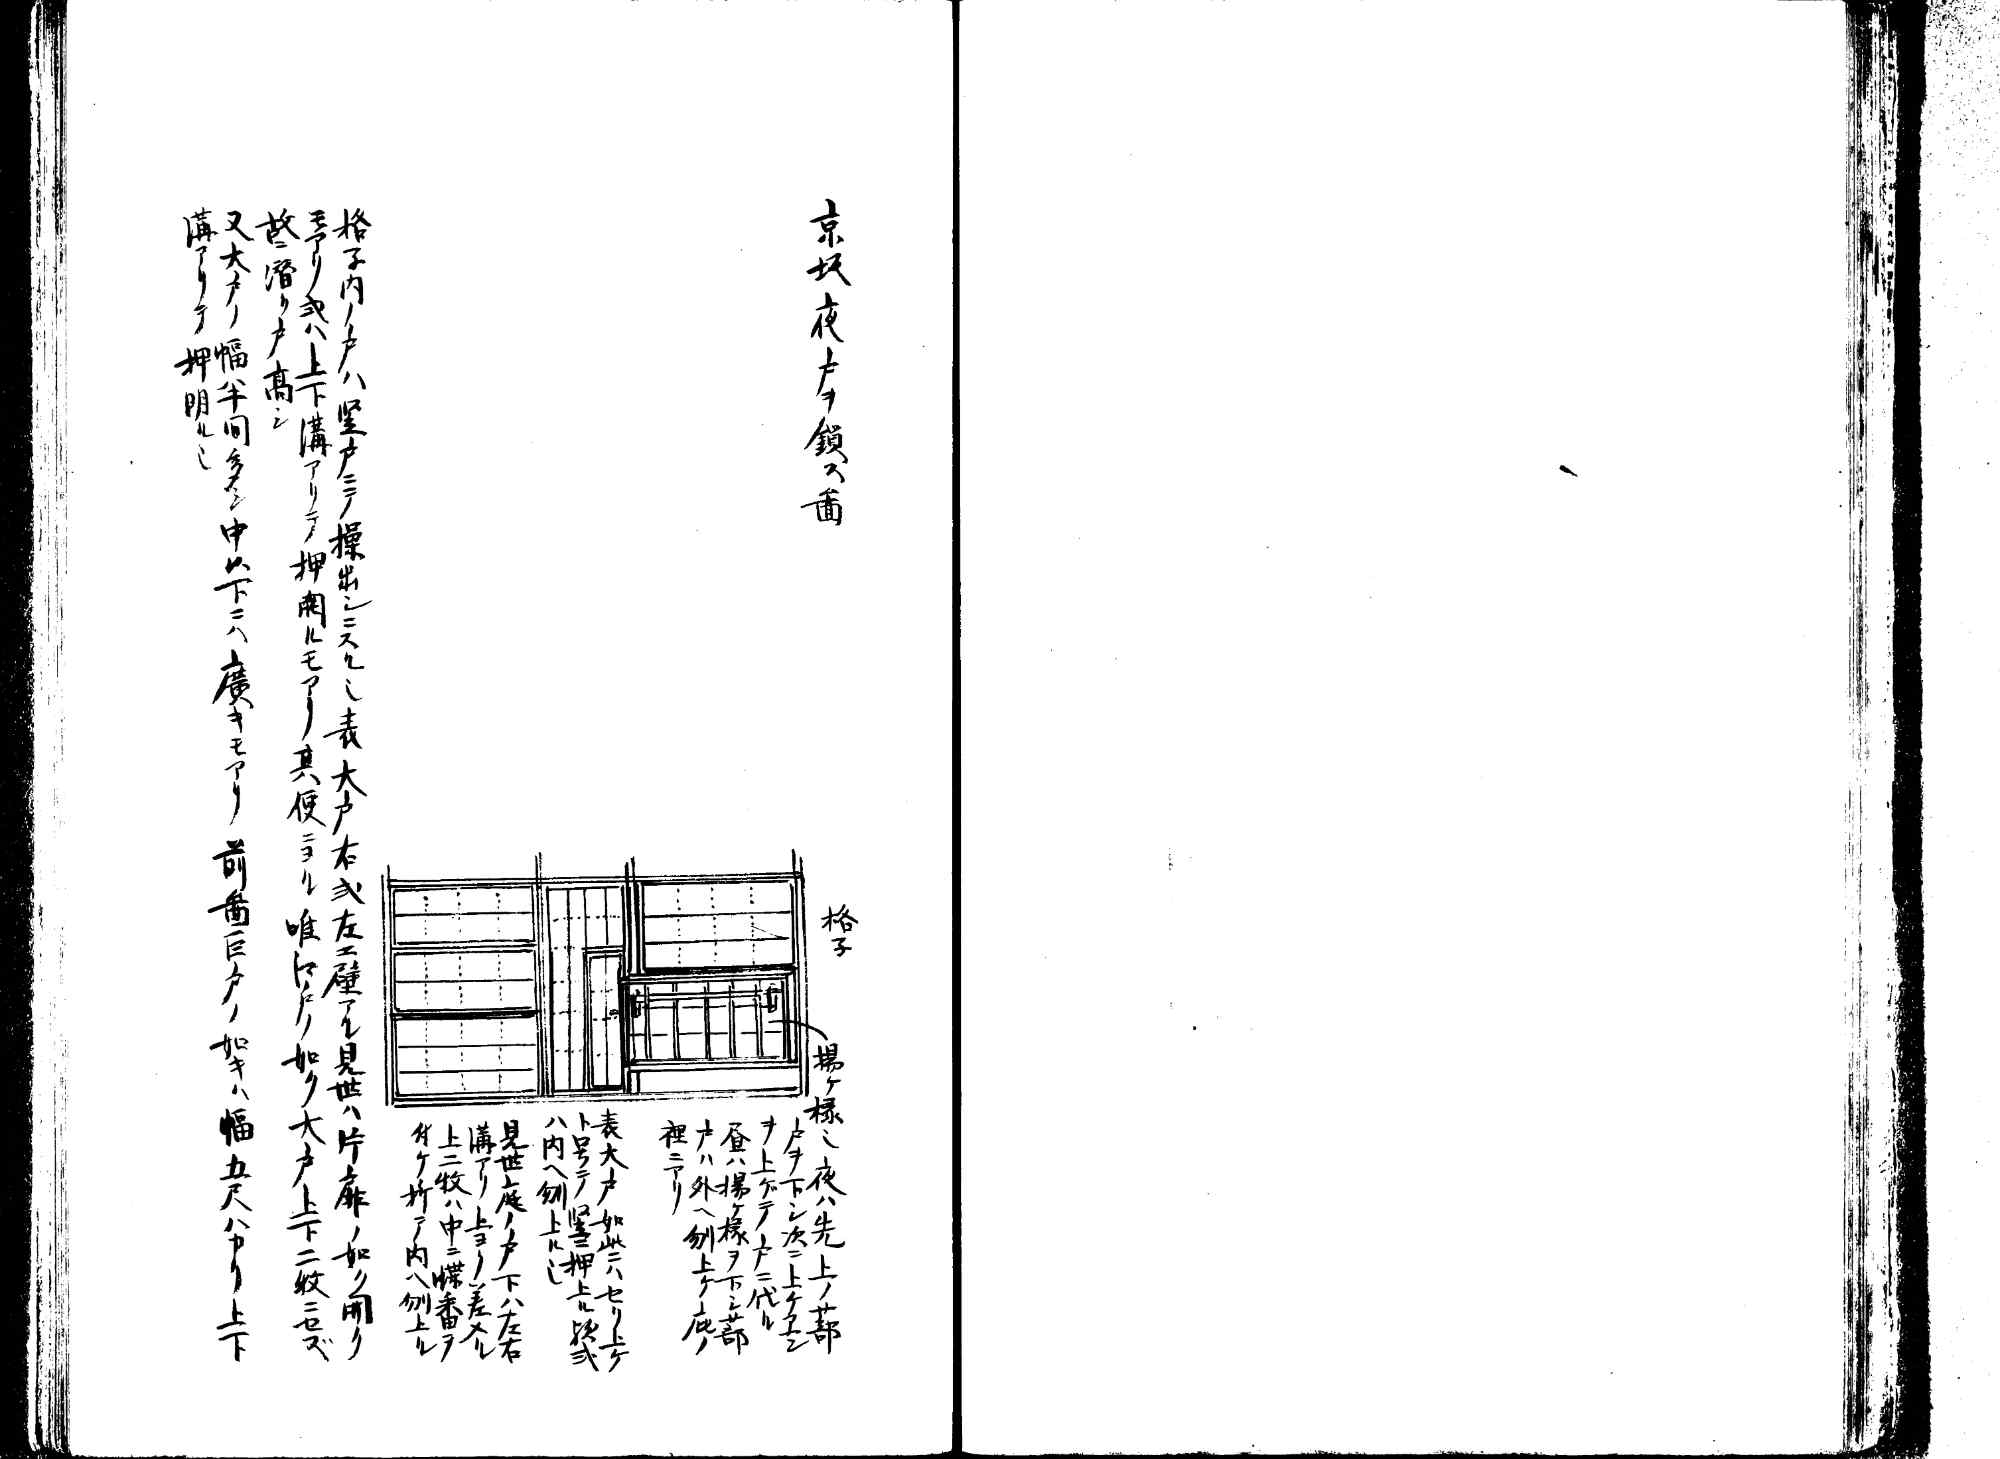 京坂夜戸ヲ鎖ス啚
格子
揚ケ椽也夜ハ先上ノ蔀
戸ヲ下シ次ニ上ケエン
ヲ上ゲテノ戸ニ代ル
昼ハ揚ケ椽ヲ下シ蔀
戸ハ外ヘ刎上ケ庇ノ
裡ニアリ
表大戸如此ニハセリ上ケ
ト号テ竪ニ押上ル欤或
ハ内ヘ刎上ル也
見世庭ノ戸下ハ左右
溝アリ上ヨリ差入ル
上二枚ハ中ニ蝶番ヲ
付ケ折テ内ヘ刎上ル
格子内ノ戸ハ竪戸ニテ操出シニスル也表大戸右或左エ壁アル見世ハ片扉ノ如ク開ク
モアリ或ハ上下溝アリテ押開ルモアリ其便ニヨル唯江戸ノ如ク大戸上下二枚ニセズ
故ニ潜リ戸高シ
又大戸ノ幅半間多シ中以下ニハ廣キモアリ前啚巨戸ノ如キハ幅五尺ハカリ上下
溝アリテ押明ル也